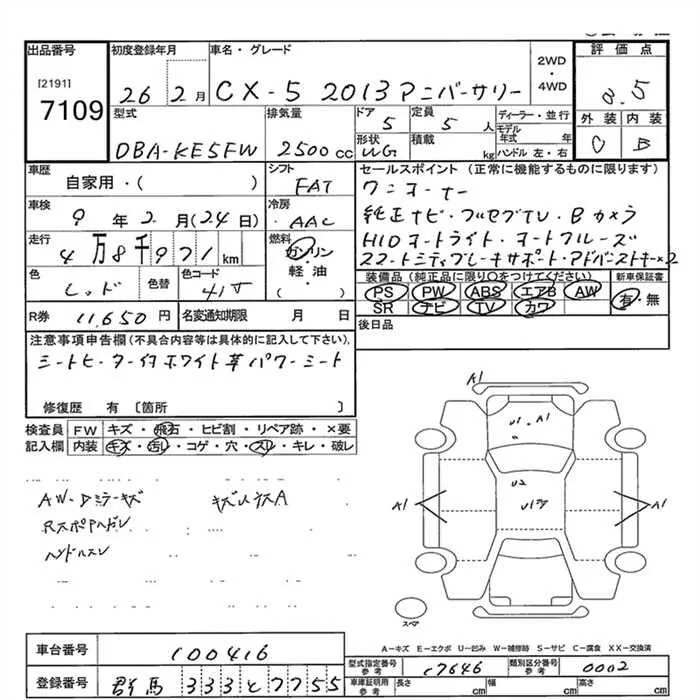 出品番号 初度登録年月 車名・グレード 2WD ・ 4WD 評価点
[2191]
7109
26年2月 CX-5 2013アニバーサリー 3.5
型式 排気量 ドア 定員 ディーラー・並行 外装 内装
DBA-KE5FW 2500cc 5 5人 モデル年式 年 C B
形状 WG 積載 kg ハンドル 左・右
車歴 シフト セールスポイント (正常に機能するものに限ります)
自家用・( ) FAT ワンオーナー
車検 冷房 純正ナビ・フルセグTV・Bカメラ
9年2月(24日) AAC HIDオートライト・オートクルーズ
走行 燃料 スマートシティブレーキサポート・アドバンストキー×2
4万8千971km ガソリン・軽油・( )
色 色替 色コード 装備品 (純正品に限り○をつけてください) 新車保証書
レッド 41V PS PW ABS エアB AW 有・無
SR ナビ TV カワ
R券 11,650円 名変通知期限 月 日 後日品
注意事項申告欄(不具合内容等は具体的に記入して下さい)
シートヒーター付ホワイト革パワーシート
修復歴 有 〔箇所 〕
検査員 FW キズ・飛石・ヒビ割・リペア跡・×要
記入欄 内装 キズ・汚レ・コゲ・穴・スレ・キレ・破レ
A1
U1 A1
AW・Dミラーキズ キズU大A
ハンドルスレ
U2
A1 A1
スペア
A-キズ E-エクボ U-凹み W-補修跡 S-サビ C-腐食 XX-交換済
車台番号 100416
型式指定番号 参考 17646 類別区分番号 参考 0002
登録番号 群馬 333 と 7755
車庫証明用 参考 長さ cm 幅 cm 高さ cm